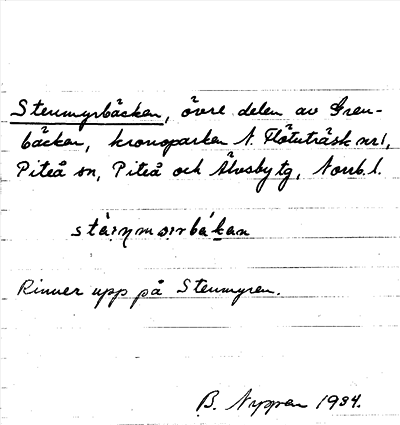 Stenmyrbäcken, övre delen av Gren-
bäcken, kronoparken N. Flötuträsk nr 1,
Piteå sn, Piteå och Älvsby tg, Norrb. l.
Rinner upp på Stenmyren.
B. Nyppen 1934.